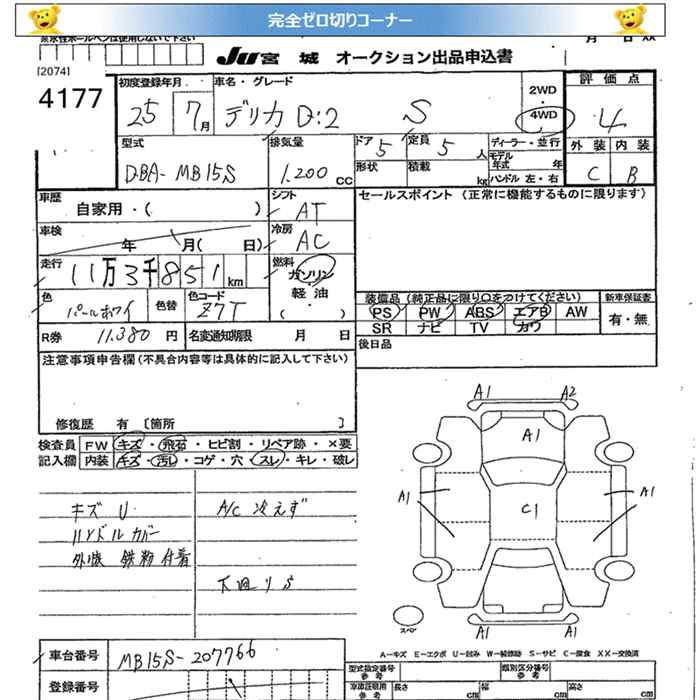 完全ゼロ切りコーナー
水性ボールペンは使用しないで下さい
月 日 XX
[2074]
4177
Ju 宮城 オークション出品申込書
初度登録年月 車名・グレード
25 7月 デリカ D:2 S
2WD
・
4WD
評価点
4
外装 内装
C B
型式 排気量
DBA-MB15S 1.200 cc
ドア 5 定員 5 人
形状 積載 kg
ディーラー・並行
モデル年式 年
ハンドル 左・右
車歴 自家用・( )
シフト AT
セールスポイント (正常に機能するものに限ります)
車検 年 月( 日)
冷房 AC
走行 11万3千851km
燃料 ガソリン
軽油
( )
色 パールホワイ 色替 色コード Z7T
装備品 (純正品に限り○をつけてください) 新車保証書
PS PW ABS エアB AW 有・無
SR ナビ TV カワ
R券 11.380 円 名変通知期限 月 日
後日品
注意事項申告欄 (不具合内容等は具体的に記入して下さい)
修復歴 有 〔箇所 〕
検査員 FW キズ・飛石・ヒビ割・リペア跡・×要
記入欄 内装 キズ・汚れ・コゲ・穴・スレ・キレ・破レ
キズ U A/C 冷えず
ハンドルカバー
外装 鉄粉付着
下廻りS
A1 A2
A1
A1 C1 A1
A1 A1
スペア
A-キズ E-エクボ U-凹み W-補修跡 S-サビ C-腐食 XX-交換済
車台番号 MB15S-207766
型式指定番号 参考 類別区分番号 参考
登録番号
冷凍証明用 参考 長さ cm 幅 cm 高さ cm